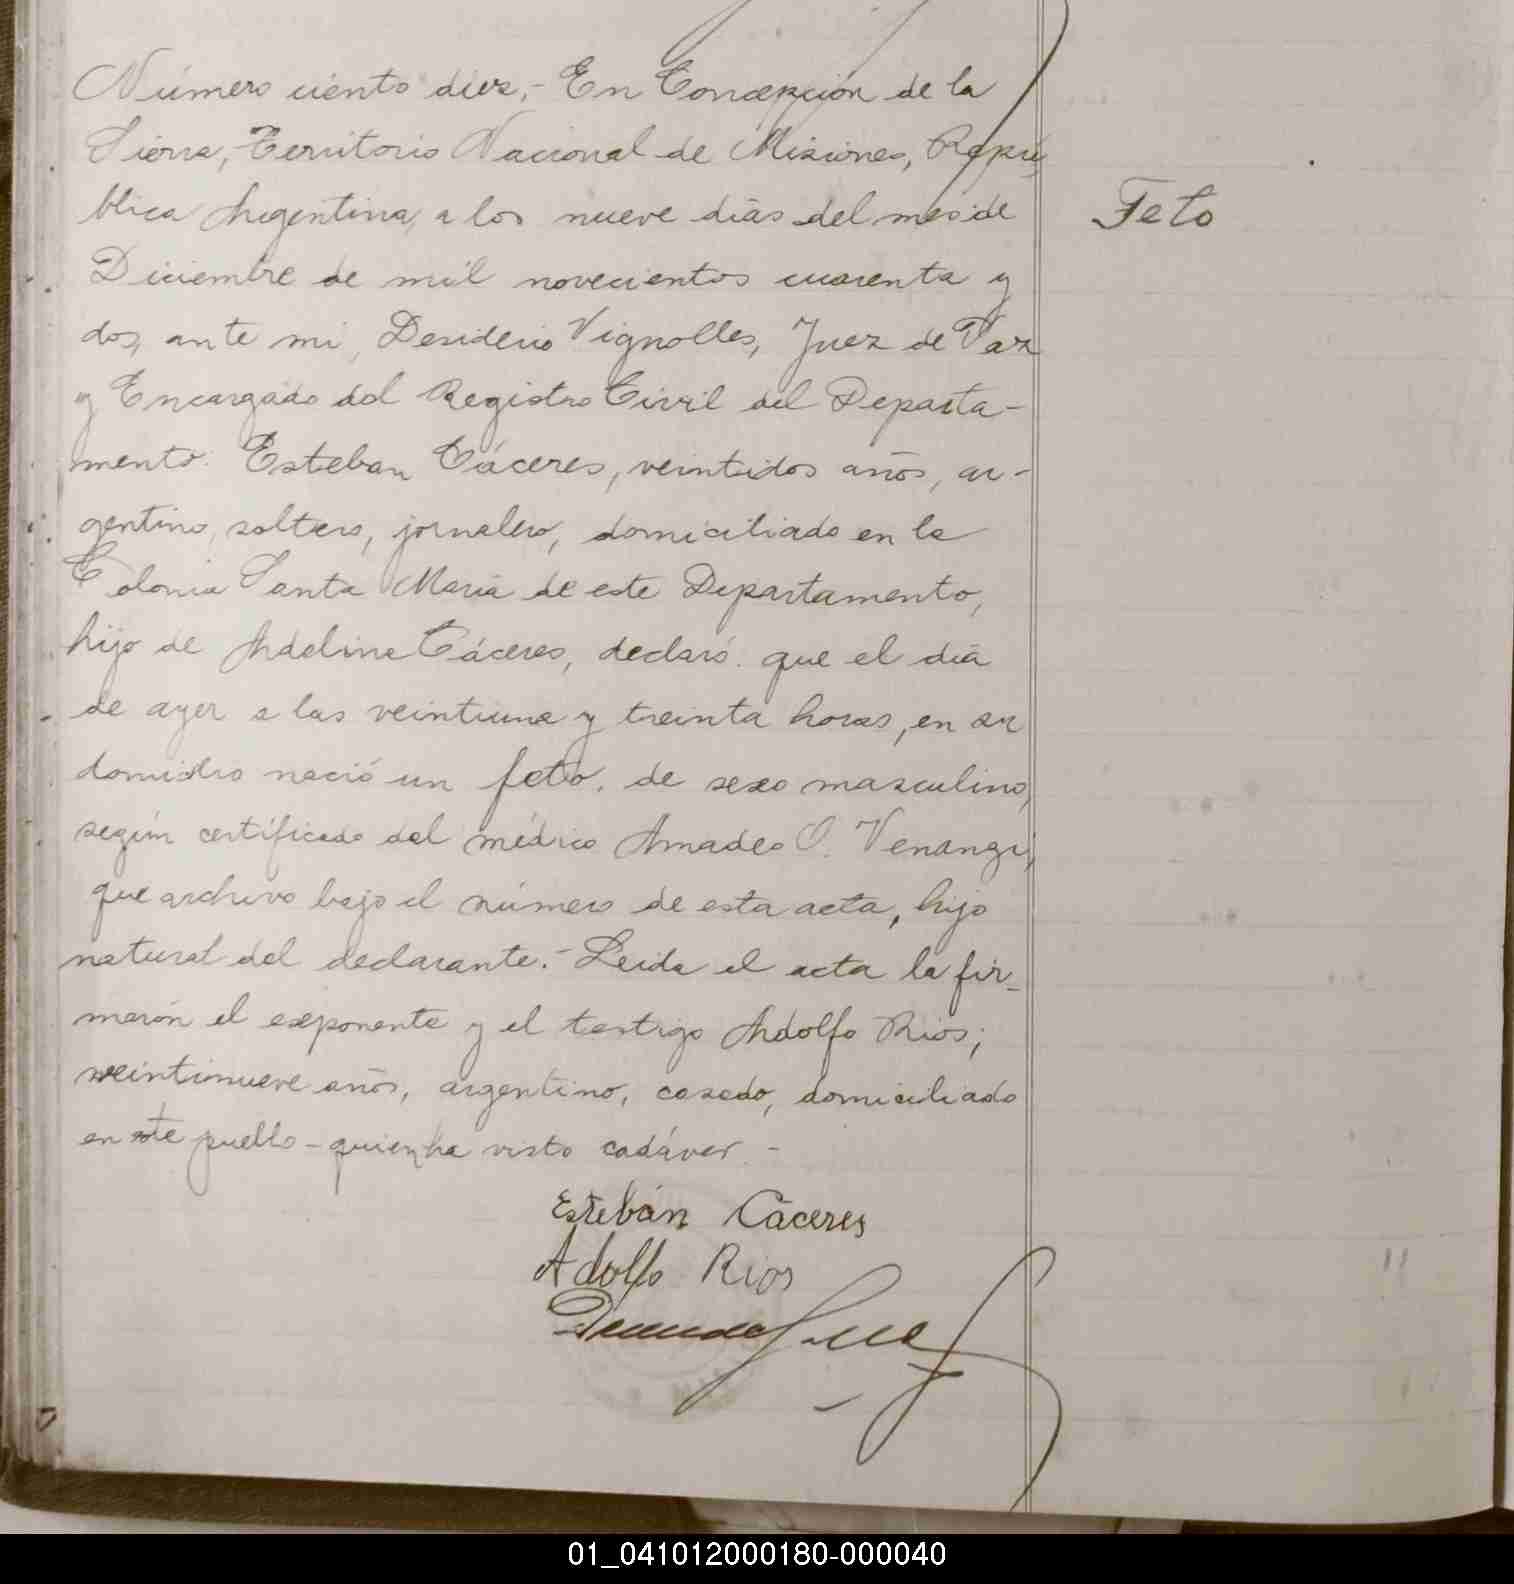 Número ciento diez.- En Concepción de la
Sierra, Territorio Nacional de Misiones, Repú
blica Argentina, a los nueve días del mes de
Diciembre de mil novecientos cuarenta y
dos, ante mi, Desiderio Vignolles, Juez de Paz
y Encargado del Registro Civil del Departa-
mento. Esteban Cáceres, veintidos años, ar-
gentino, soltero, jornalero, domiciliado en la
Colonia Santa Maria de este Departamento,
hijo de Adelina Cáceres, declaró: que el día
de ayer a las veintiuna y treinta horas, en su
domicilio nació un feto, de sexo masculino,
según certificado del médico Amadeo O. Venangi,
que archivo bajo el número de esta acta, hijo
natural del declarante.- Leida el acta la fir-
marón el exponente y el testigo Adolfo Rios;
veintinueve años, argentino, casado, domiciliado
en este pueblo - quien ha visto cadáver.-
Feto
Estebán Cáceres
Adolfo Rios
01_041012000180-000040